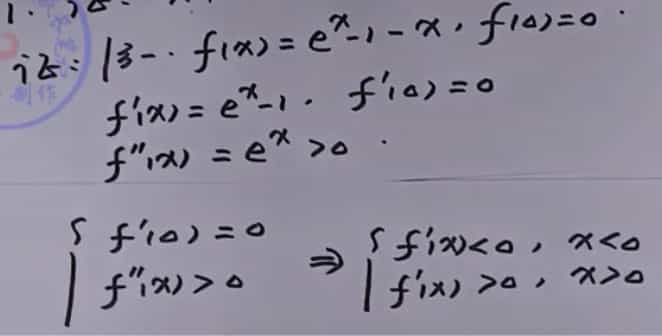 1.
证: 法一. f(x) = e^x - 1 - x, f(0) = 0.
f'(x) = e^x - 1. f'(0) = 0
f''(x) = e^x > 0.
{ f'(0) = 0 ⇒ { f'(x) < 0, x < 0
f''(x) > 0 f'(x) > 0, x > 0
制作